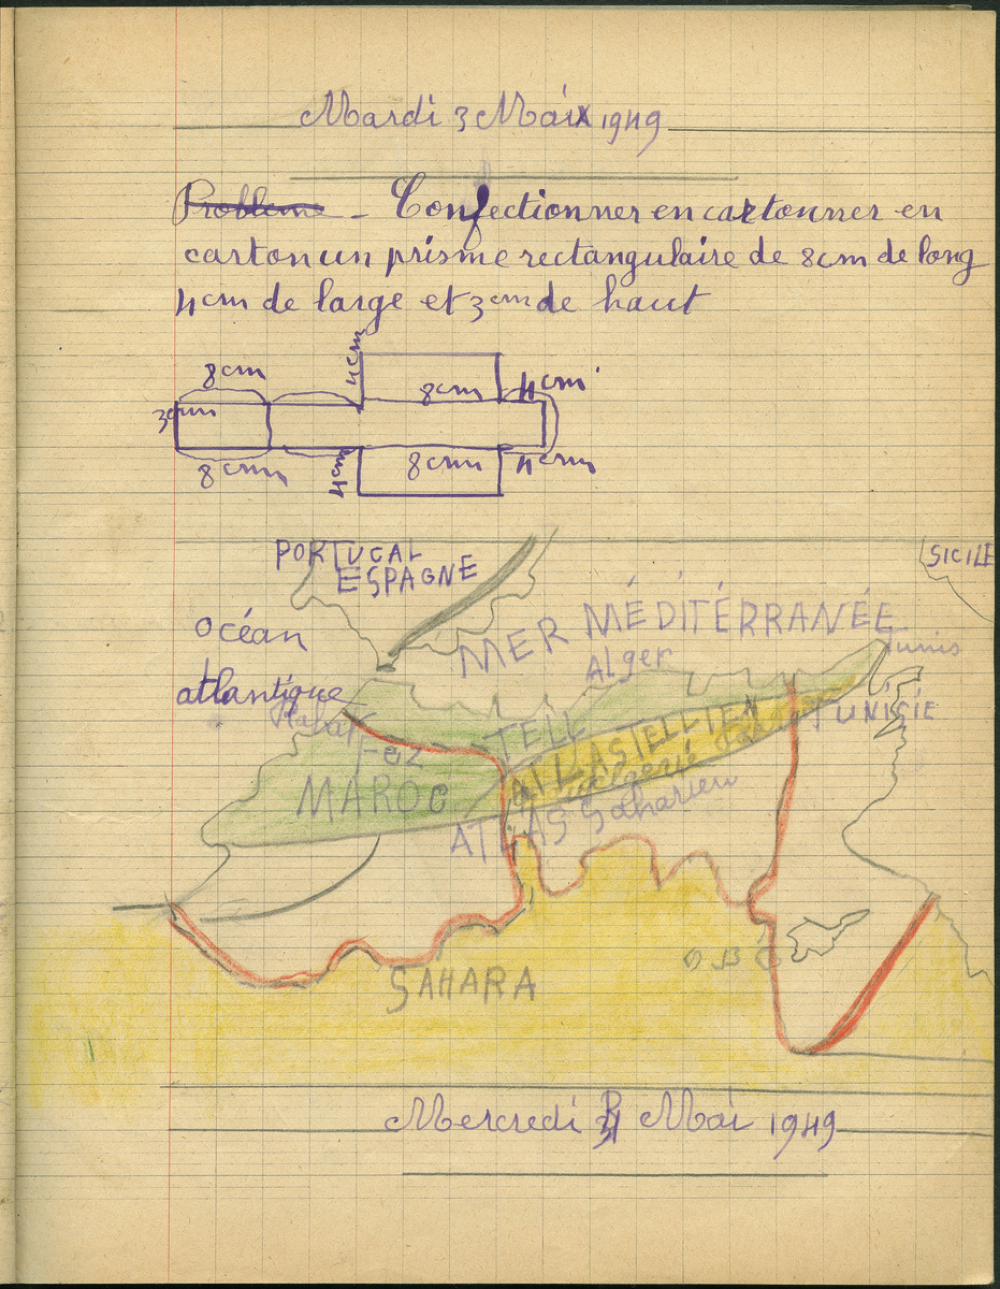 Mardi 3 Mai 1949
Probleme - Confectionner en cartonner en
carton un prisme rectangulaire de 8cm de long
4cm de large et 3cm de haut
4cm
8cm
8cm
4cm
3cm
8cm
4cm
8cm
4cm
PORTUGAL
ESPAGNE
SICILE
Océan
atlantique
MER MÉDITÉRRANÉE
Alger
Tunis
Rabat
Fez
TELL
TUNISIE
ATLAS TELLIEN
Algérie
MAROC
ATLAS Saharien
SAHARA
Mercredi 4 Mai 1949